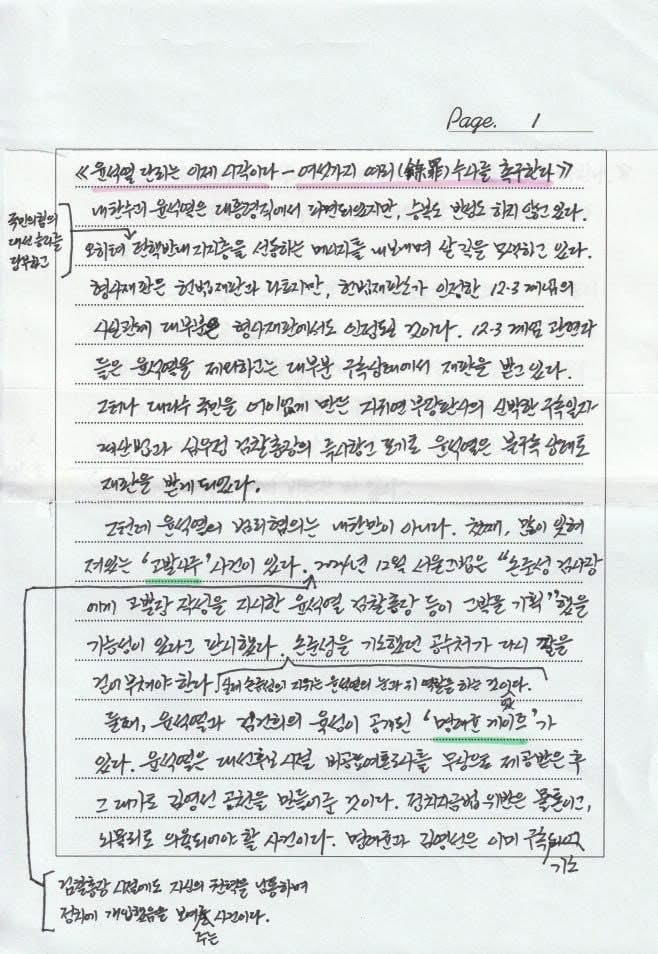 Page. 1
《윤석열 단죄는 이제 시작이다 - 여섯가지 여죄(餘罪) 수사를 촉구한다》
내란수괴 윤석열은 대통령직에서 파면되었지만, 승복도 반성도 하지 않고 있다.
국민의힘의
대선 승리를
당부하고
오히려 탄핵반대 지지층을 선동하는 메시지를 내보내며 살 길을 모색하고 있다.
형사재판은 헌법재판과 다르지만, 헌법재판소가 인정한 12·3 계엄의
사실관계 대부분은 형사재판에서도 인정될 것이다. 12·3 계엄 관련자
들은 윤석열을 제외하고는 대부분 구속상태에서 재판을 받고 있다.
그러나 대다수 국민을 어이없게 만든 지귀연 부장판사의 신박한 구속일자
계산법과 심우정 검찰총장의 즉시항고 포기로 윤석열은 불구속 상태로
재판을 받게 되었다.
그런데 윤석열의 범죄혐의는 내란만이 아니다. 첫째, 많이 잊혀
져 있는 '고발사주' 사건이 있다. 2024년 12월 서울고법은 "손준성 검사장
에게 고발장 작성을 지시한 윤석열 검찰총장 등이 고발을 기획"했을
가능성이 있다고 판시했다. 손준성을 기소했던 공수처가 다시 팔을
걷어 부쳐야 한다. 당시 손준성의 지위는 윤석열의 눈과 귀 역할을 하는 것이었다.
둘째, 윤석열과 김건희의 육성이 공개된 '명태균 게이트'가
있다. 윤석열은 대선후보 시절 비공표여론조사를 무상으로 제공받은 후
그 대가로 김영선 공천을 만들어준 것이다. 정치자금법 위반은 물론이고,
뇌물죄로 의율되어야 할 사건이다. 명태균과 김영선은 이미 구속
기소
검찰총장 시절에도 자신의 권력을 남용하여
정치에 개입했음을 보여주는 사건이다.